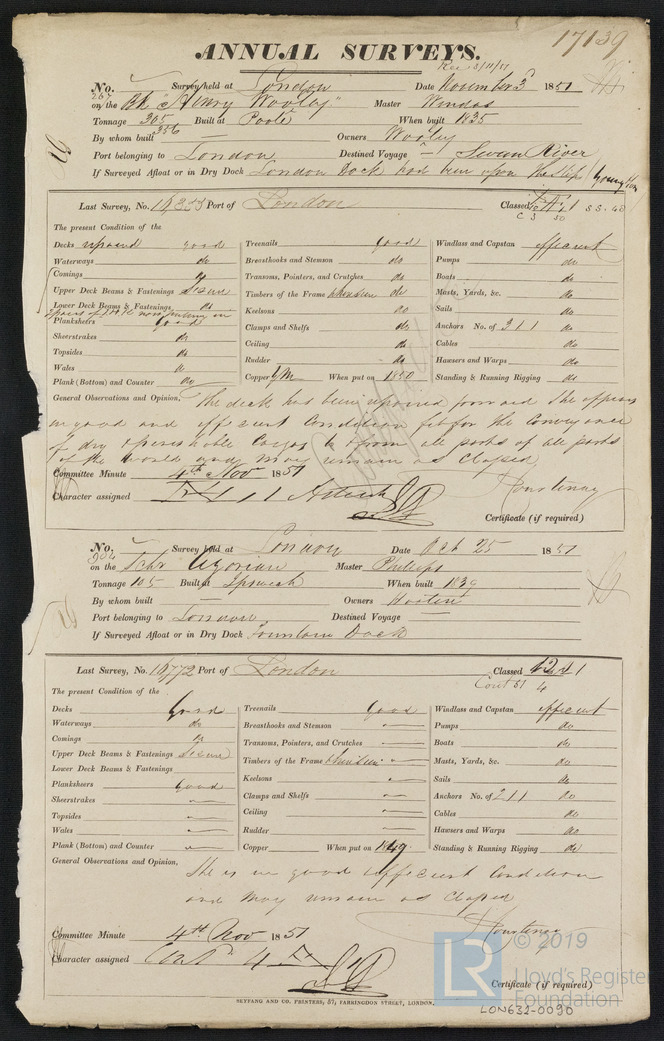 17139
ANNUAL SURVEYS.
Rec 3/11/51
No. 267 Survey held at London Date November 3 1851
on the Bk "Henry Wooley" Master Windas
Tonnage 305 356 Built at Poole When built 1835
By whom built — Owners Wooley
Port belonging to London Destined Voyage — Swan River
If Surveyed Afloat or in Dry Dock London Dock had been upon the Slip
Last Survey, No. Port of London Classed
The present Condition of the
Decks good Treenails Good Windlass and Capstan efficient
Waterways do Breasthooks and Stemson do Pumps do
Comings do Transoms, Pointers, and Crutches do Boats do
Upper Deck Beams & Fastenings Secure Timbers of the Frame do Masts, Yards, &c. do
Lower Deck Beams & Fastenings do Keelsons do Sails do
Planksheers Good Clamps and Shelfs do Anchors No. of 2 1 1 do
Sheerstrakes do Ceiling do Cables do
Topsides do Rudder do Hawsers and Warps do
Wales do Copper YM When put on 1850 Standing & Running Rigging do
Plank (Bottom) and Counter do
General Observations and Opinion, The deck has been repaired forward She appears
in good and efficient Condition fit for the Conveyance
of dry & perishable Cargo to & from all parts of all parts
of the World and may remain as Classed
Committee Minute 4th Nov 1851
Courtenay
Character assigned
Certificate (if required)
No. 902 Survey held at London Date Oct 25 1851
on the Schr Azorian Master Phillips
Tonnage 105 Built at Ipswich When built 1839
By whom built — Owners
Port belonging to London Destined Voyage —
If Surveyed Afloat or in Dry Dock Fountain Dock
Last Survey, No. 16772 Port of London Classed
Cont 51 4
The present Condition of the
Decks Good Treenails Good Windlass and Capstan efficient
Waterways do Breasthooks and Stemson — Pumps do
Comings do Transoms, Pointers, and Crutches — Boats do
Upper Deck Beams & Fastenings Secure Timbers of the Frame — Masts, Yards, &c. do
Lower Deck Beams & Fastenings Keelsons — Sails do
Planksheers Good Clamps and Shelfs — Anchors No. of 2 1 1 do
Sheerstrakes — Ceiling — Cables do
Topsides — Rudder — Hawsers and Warps do
Wales — Copper When put on 1849 Standing & Running Rigging do
Plank (Bottom) and Counter —
General Observations and Opinion, She is in good & efficient Condition
and may remain as Classed
Courtenay
Committee Minute 4th Nov 1851
Character assigned Contd 4
Certificate (if required)
SEYFANG AND CO. PRINTERS, 57, FARRINGDON STREET, LONDON.
LR © 2019
Lloyd's Register
Foundation
LON632-0090